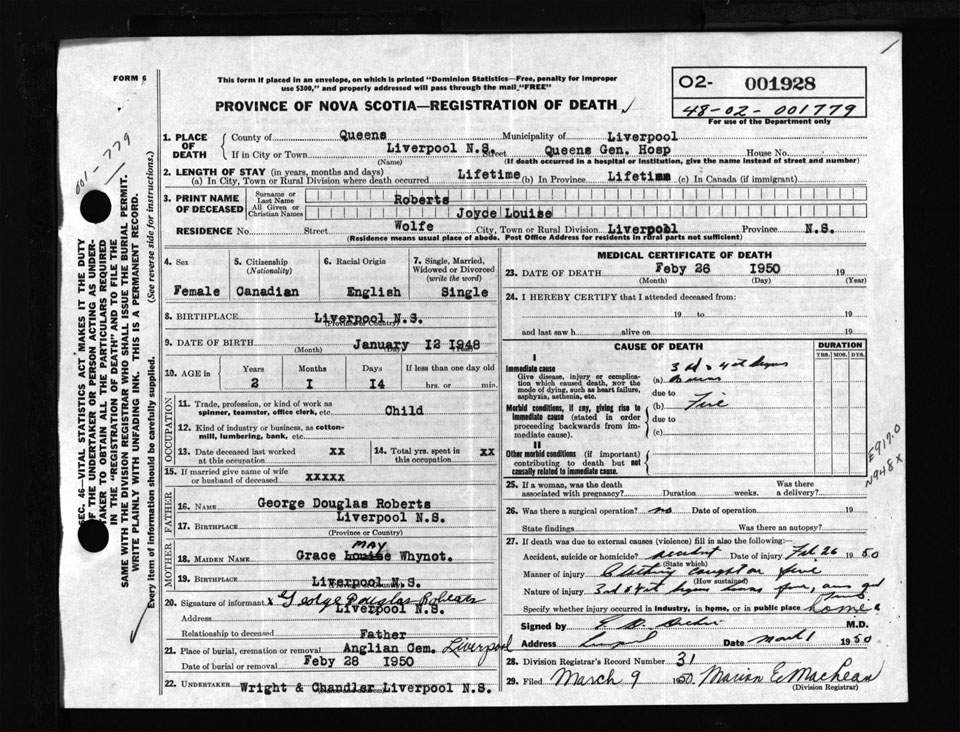 FORM 6
This form if placed in an envelope, on which is printed "Dominion Statistics—Free, penalty for improper
use $300," and properly addressed will pass through the mail "FREE"
PROVINCE OF NOVA SCOTIA—REGISTRATION OF DEATH
O2- 001928
48-02-001779
For use of the Department only
001-779
SEC. 46—VITAL STATISTICS ACT MAKES IT THE DUTY
OF THE UNDERTAKER OR PERSON ACTING AS UNDER-
TAKER TO OBTAIN ALL THE PARTICULARS REQUIRED
IN THE "REGISTRATION OF DEATH" AND TO FILE THE
SAME WITH THE DIVISION REGISTRAR WHO SHALL ISSUE THE BURIAL PERMIT.
WRITE PLAINLY WITH UNFADING INK. THIS IS A PERMANENT RECORD.
Every item of information should be carefully supplied. (See reverse side for instructions.)
1. PLACE OF DEATH County of Queens Municipality of Liverpool
If in City or Town Liverpool N.S. Street Queens Gen. Hosp House No.
(Name) (If death occurred in a hospital or institution, give the name instead of street and number)
2. LENGTH OF STAY (in years, months and days)
(a) In City, Town or Rural Division where death occurred Lifetime (b) In Province Lifetime (c) In Canada (if immigrant)
3. PRINT NAME OF DECEASED Surname or Last Name Roberts
All Given or Christian Names Joyce Louise
RESIDENCE No. Street Wolfe City, Town or Rural Division Liverpool Province N.S.
(Residence means usual place of abode. Post Office Address for residents in rural parts not sufficient)
4. Sex 5. Citizenship (Nationality) 6. Racial Origin 7. Single, Married, Widowed or Divorced (write the word)
Female Canadian English Single
8. BIRTHPLACE Liverpool N.S.
(Province or Country)
9. DATE OF BIRTH January 12 1948
(Month) (Day) (Year)
10. AGE in Years Months Days If less than one day old
2 1 14 hrs. or min.
OCCUPATION
11. Trade, profession, or kind of work as
spinner, teamster, office clerk, etc. Child
12. Kind of industry or business, as cotton-
mill, lumbering, bank, etc.
13. Date deceased last worked at this occupation xx 14. Total yrs. spent in this occupation xx
15. If married give name of wife
or husband of deceased xxxxx
FATHER
16. NAME George Douglas Roberts
17. BIRTHPLACE Liverpool N.S.
(Province or Country)
MOTHER
18. MAIDEN NAME Grace Louise MAY Whynot.
19. BIRTHPLACE Liverpool N.S.
(Province or Country)
20. Signature of informant x George Douglas Roberts
Address Liverpool N.S.
Relationship to deceased Father
21. Place of burial, cremation or removal Anglian Cem. Liverpool
Date of burial or removal Feby 28 1950
22. UNDERTAKER Wright & Chandler Liverpool N.S.
MEDICAL CERTIFICATE OF DEATH
23. DATE OF DEATH Feby 26 1950 19
(Month) (Day) (Year)
24. I HEREBY CERTIFY that I attended deceased from:
19 to 19
and last saw h alive on 19
CAUSE OF DEATH DURATION
YRS. MOS. DYS.
I
Immediate cause
Give disease, injury or complica-
tion which caused death, NOT the
mode of dying, such as heart failure,
asphyxia, asthenia, etc.
(a) 3rd & 4th degree burns
due to
Morbid conditions, if any, giving rise to
immediate cause (stated in order
proceeding backwards from im-
mediate cause).
(b) Fire
due to
(c)
II
Other morbid conditions (if important)
contributing to death but not
causally related to immediate cause.
E917.0
N948X
25. If a woman, was the death
associated with pregnancy? Duration weeks. Was there a delivery?
26. Was there a surgical operation? no Date of operation 19
State findings Was there an autopsy?
27. If death was due to external causes (violence) fill in also the following:—
Accident, suicide or homicide? accident Date of injury Feb 26 1950
(State which)
Manner of injury Clothing caught on fire
(How sustained)
Nature of injury 3rd & 4th degree burns face, arms and trunk
Specify whether injury occurred in industry, in home, or in public place home
Signed by M.D.
Address Date March 1 1950
28. Division Registrar's Record Number 31
29. Filed March 9 1950 Marion E MacLean
(Division Registrar)